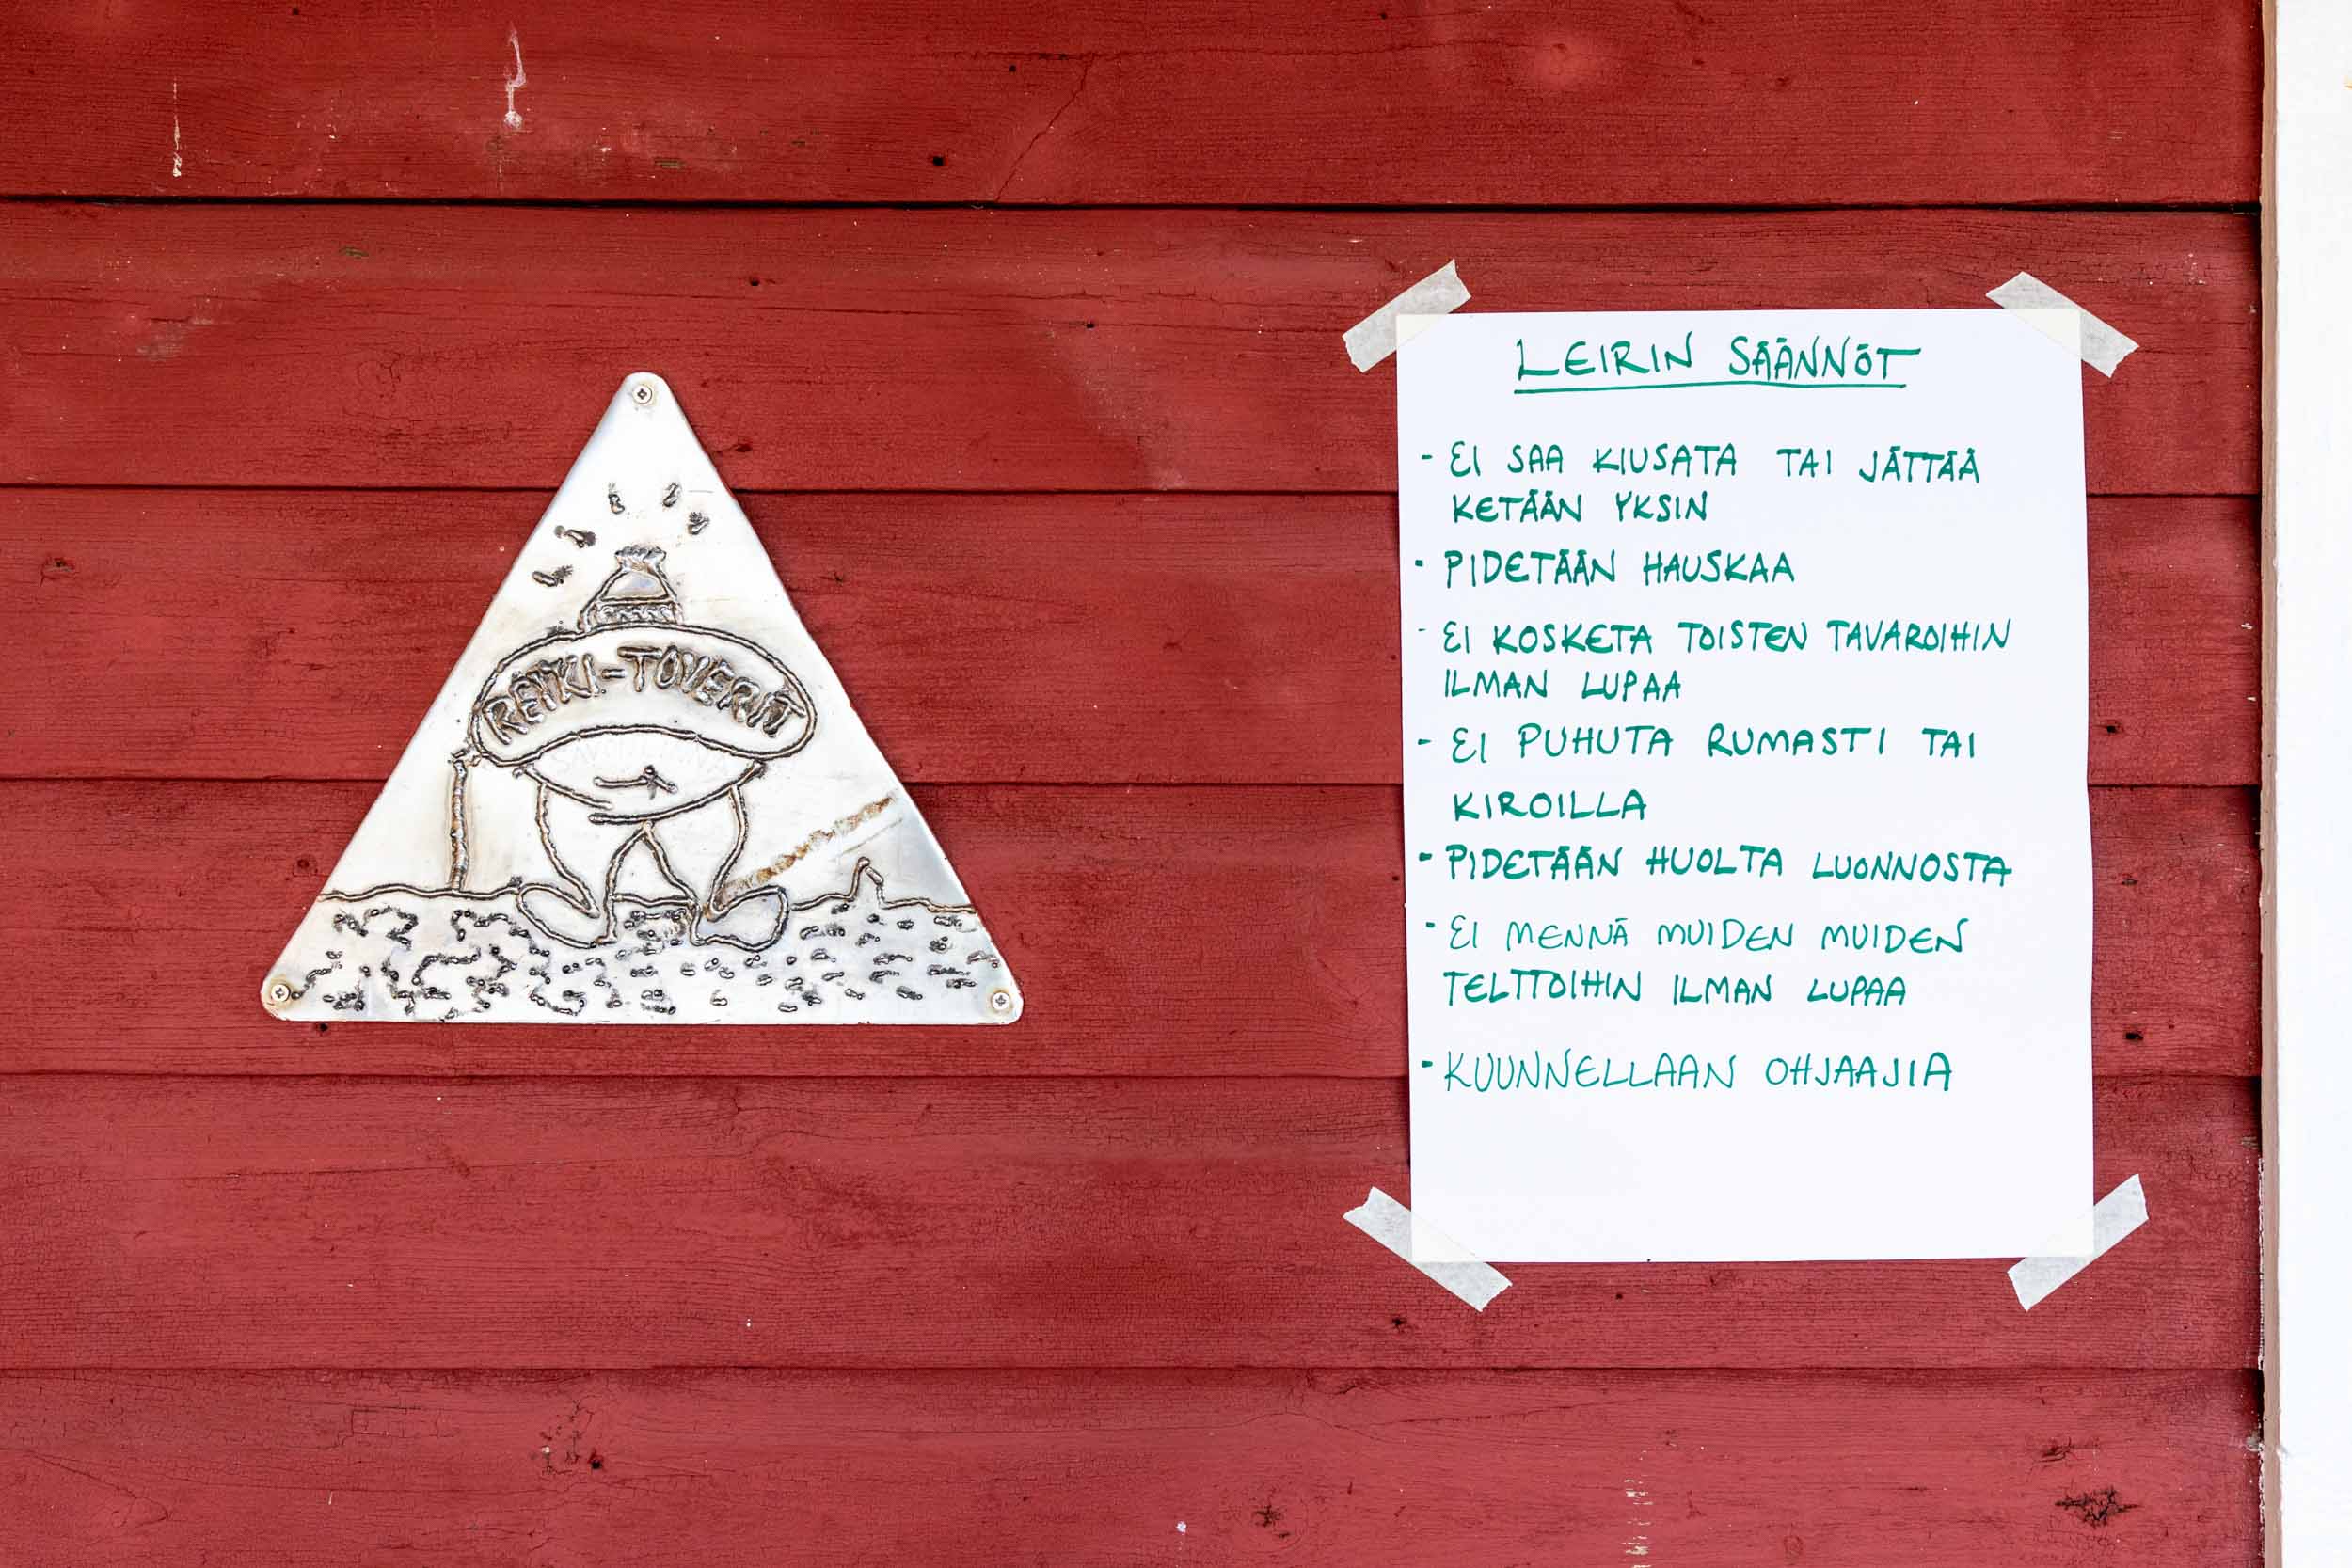 REIKI-TOVERIT
LEIRIN SÄÄNNÖT
- EI SAA KIUSATA TAI JÄTTÄÄ
KETÄÄN YKSIN
- PIDETÄÄN HAUSKAA
- EI KOSKETA TOISTEN TAVAROIHIN
ILMAN LUPAA
- EI PUHUTA RUMASTI TAI
KIROILLA
- PIDETÄÄN HUOLTA LUONNOSTA
- EI MENNÄ MUIDEN MUIDEN
TELTTOIHIN ILMAN LUPAA
- KUUNNELLAAN OHJAAJIA